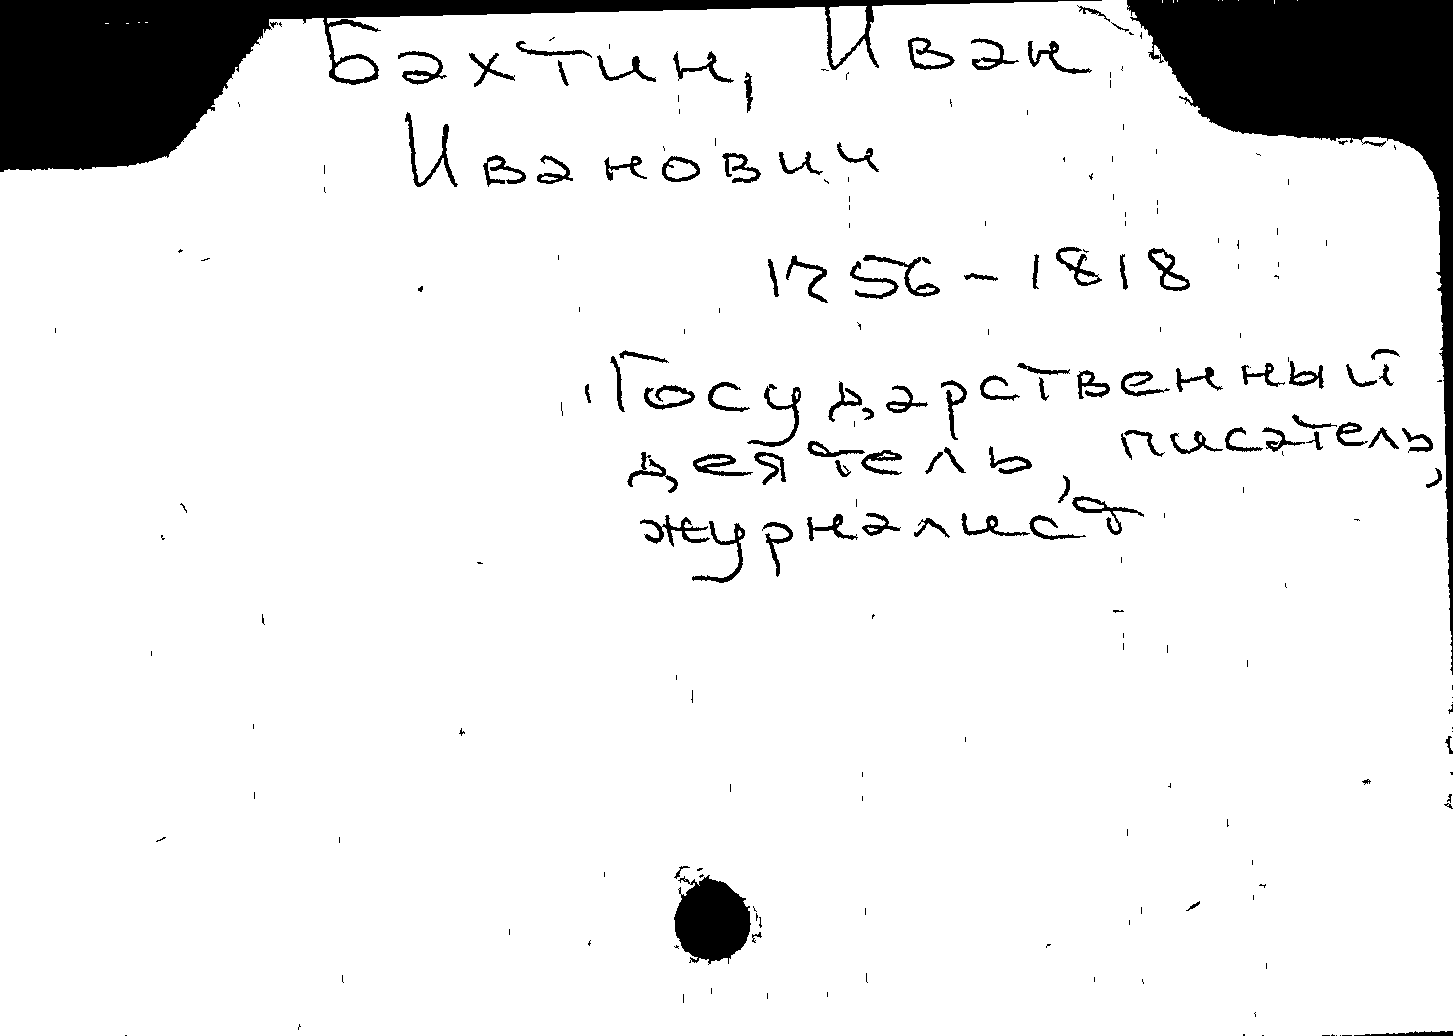 Бахтин, Иван
Иванович
1756-1818
Государственный
деятель, писатель,
журналист